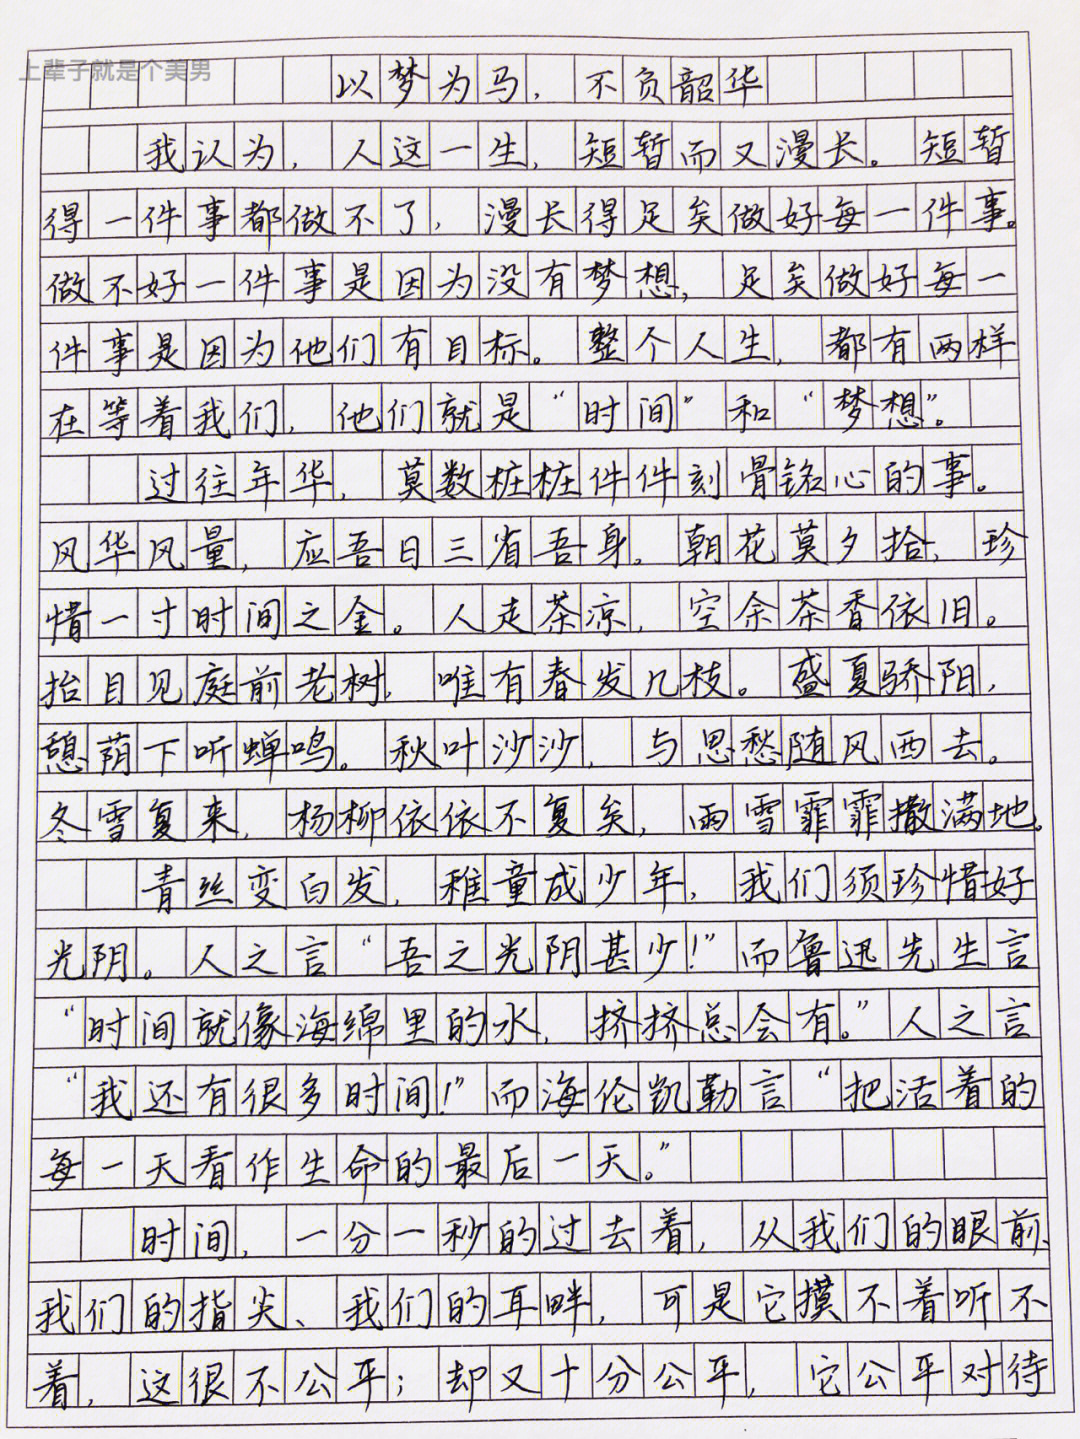 上辈子就是个美男
以梦为马，不负韶华
我认为，人这一生，短暂而又漫长。短暂
得一件事都做不了，漫长得足矣做好每一件事。
做不好一件事是因为没有梦想，足矣做好每一
件事是因为他们有目标。整个人生，都有两样
在等着我们，他们就是“时间”和“梦想”。
过往年华，莫数桩桩件件刻骨铭心的事。
风华风量，应吾日三省吾身。朝花莫夕拾，珍
惜一寸时间之金。人走茶凉，空余茶香依旧。
抬目见庭前老树，唯有春发几枝。盛夏骄阳，
憩荫下听蝉鸣。秋叶沙沙，与思愁随风西去。
冬雪复来，杨柳依依不复矣，雨雪霏霏撒满地。
青丝变白发，稚童成少年，我们须珍惜好
光阴。人之言“吾之光阴甚少！”而鲁迅先生言
“时间就像海绵里的水，挤挤总会有。”人之言
“我还有很多时间！”而海伦凯勒言“把活着的
每一天看作生命的最后一天。”
时间，一分一秒的过去着，从我们的眼前、
我们的指尖、我们的耳畔，可是它摸不着听不
着，这很不公平；却又十分公平，它公平对待